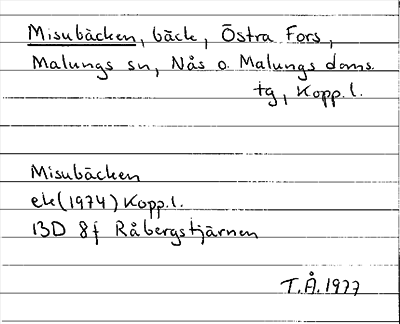 Misubäcken, bäck, Östra Fors,
Malungs sn, Nås o. Malungs doms.
tg, Kopp.l.
Misubäcken
ek(1974) Kopp.l.
13D 8f Råbergstjärnen
T.Å.1977